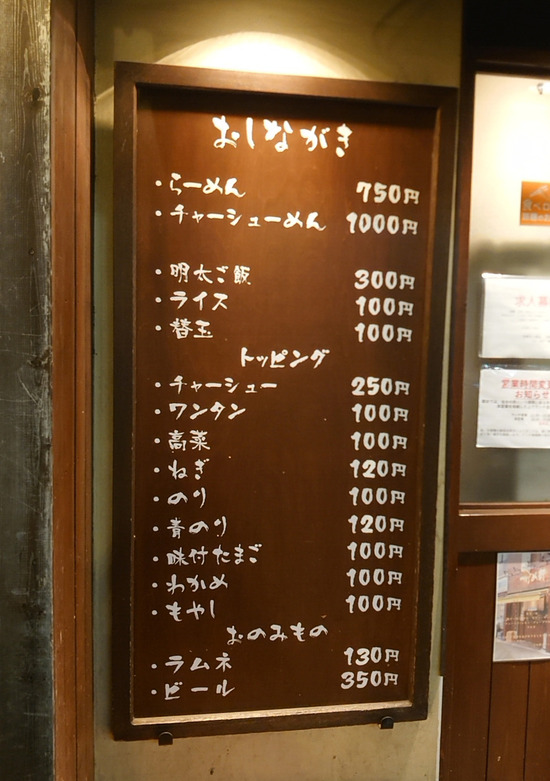 おしながき
・らーめん 750円
・チャーシューめん 1000円
・明太ご飯 300円
・ライス 100円
・替玉 100円
トッピング
・チャーシュー 250円
・ワンタン 100円
・高菜 100円
・ねぎ 120円
・のり 100円
・青のり 120円
・味付たまご 100円
・わかめ 100円
・もやし 100円
おのみもの
・ラムネ 130円
・ビール 350円
食べロ
求人募
営業時間変
お知らせ